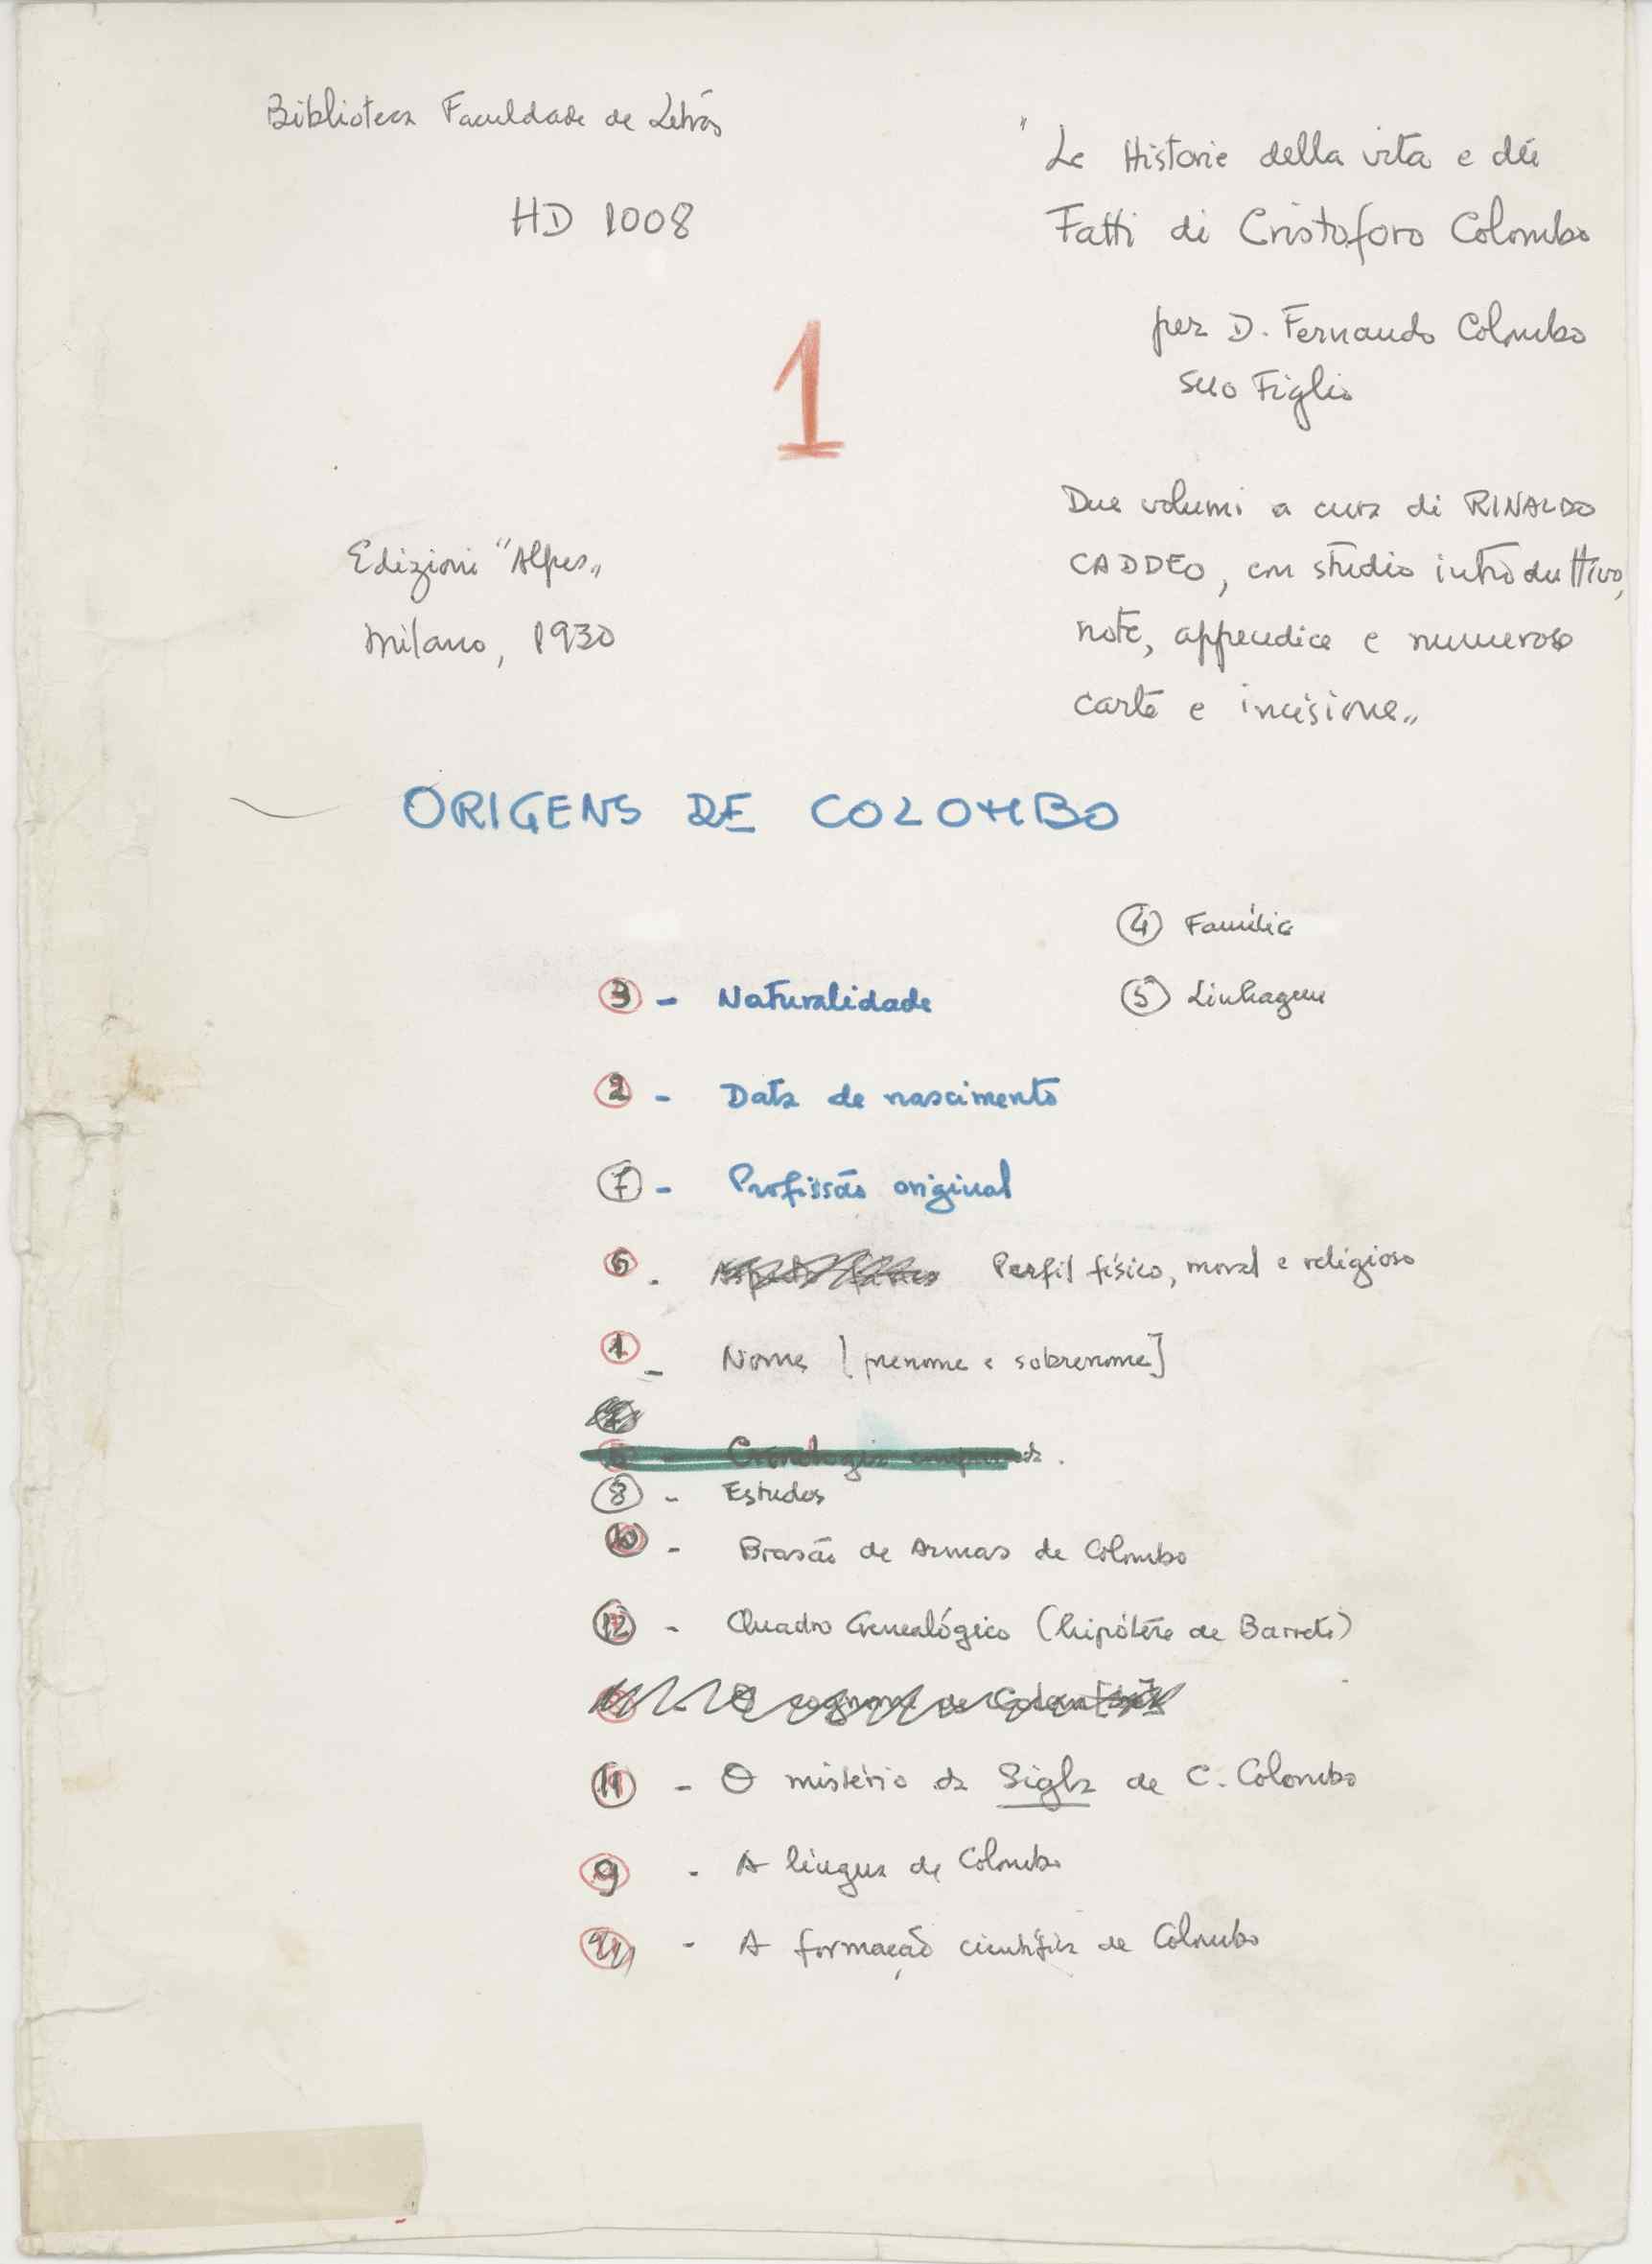 Biblioteca Faculdade de Letras
HD 1008
"Le Historie della vita e dei
Fatti di Cristoforo Colombo
per D. Fernando Colombo
suo Figlio
1
Due volumi a cura di RINALDO
CADDEO, con studio introduttivo,
note, appendice e numerose
carte e incisione„
Edizioni "Alpes„
Milano, 1930
ORIGENS DE COLOMBO
4 Família
5 Linhagem
3 - Naturalidade
2 - Data de nascimento
7 - Profissão original
6 . Perfil físico, moral e religioso
1 - Nome [prenome e sobrenome]
Cronologia
8 - Estudos
10 - Brasão de Armas de Colombo
12 - Quadro Genealógico (hipótese de Barreto)
O cognome de
11 - O mistério da Sigla de C. Colombo
9 - A língua de Colombo
- A formação científica de Colombo